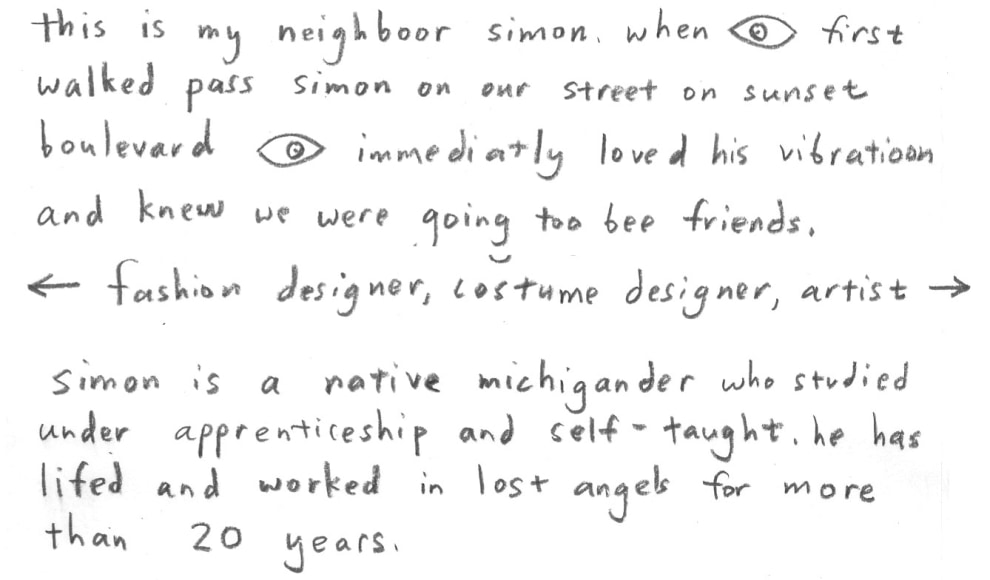 this is my neighboor simon. when 👁 first
walked pass simon on our street on sunset
boulevard 👁 immediatly loved his vibratioon
and knew we were going too bee friends.
← fashion designer, costume designer, artist →
simon is a native michigander who studied
under apprenticeship and self-taught. he has
lifed and worked in lost angels for more
than 20 years.